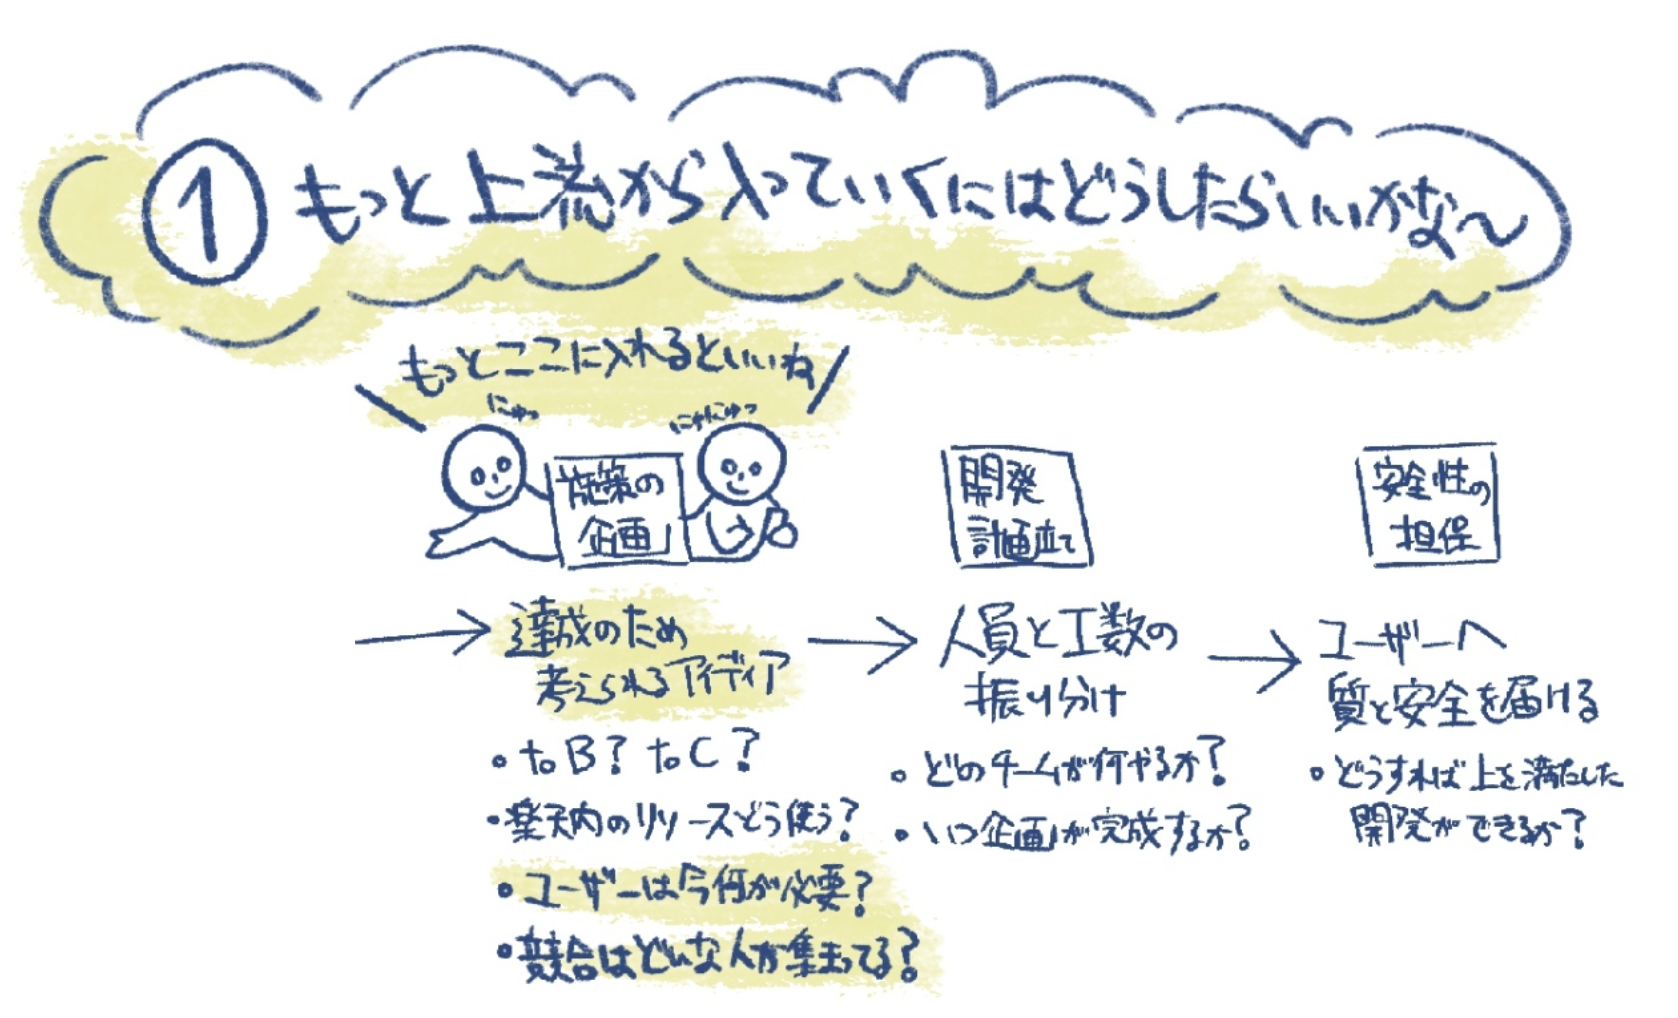 ① もっと上流から入っていくにはどうしたらいいかな〜
もっとここに入れるといいね
にゅっ
にゅにゅっ
施策の
企画
達成のため
考えられるアイディア
• to B? to C?
• 楽天内のリソースどう使う?
• ユーザーは今何が必要?
• 競合はどんな人が集まってる?
開発
計画立て
人員と工数の
振り分け
• どのチームが何やるか?
• いつ企画が完成するか?
安全性の
担保
ユーザーへ
質と安全を届ける
• どうすれば上を満たした
開発ができるか?